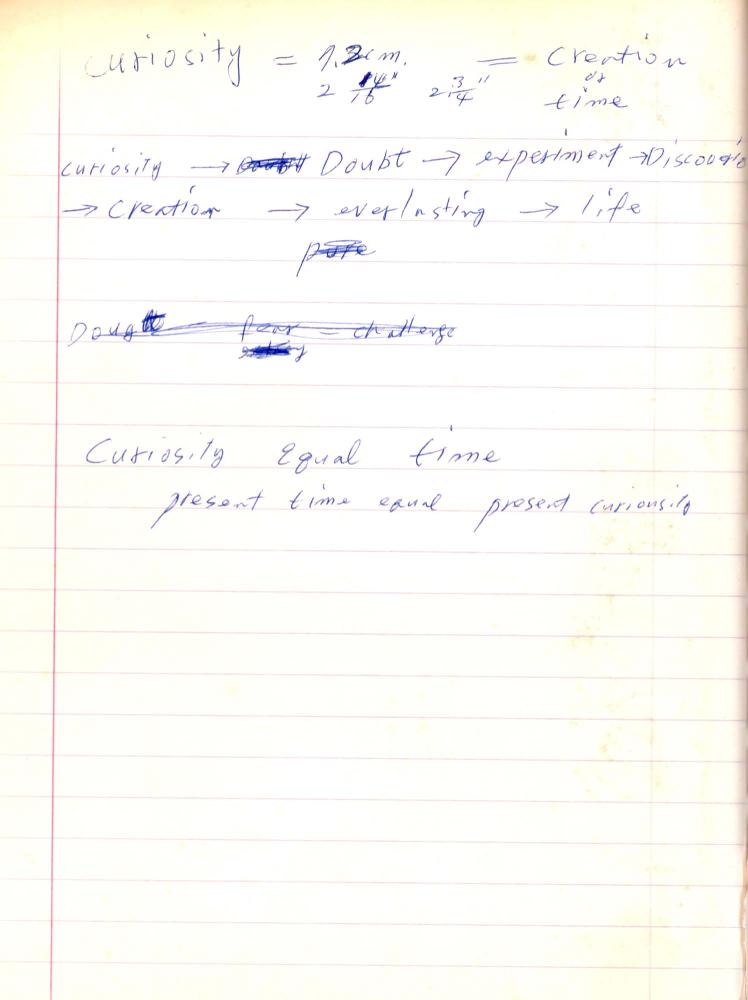 curiosity = 7.2cm. = Creation
2 14/16" 2 3/4" of
time
curiosity → Doubt → experiment → Discoverie
→ Creation → everlasting → life
pure
Doug fear - challenge
Curiosity Equal time
present time equal present curiousity